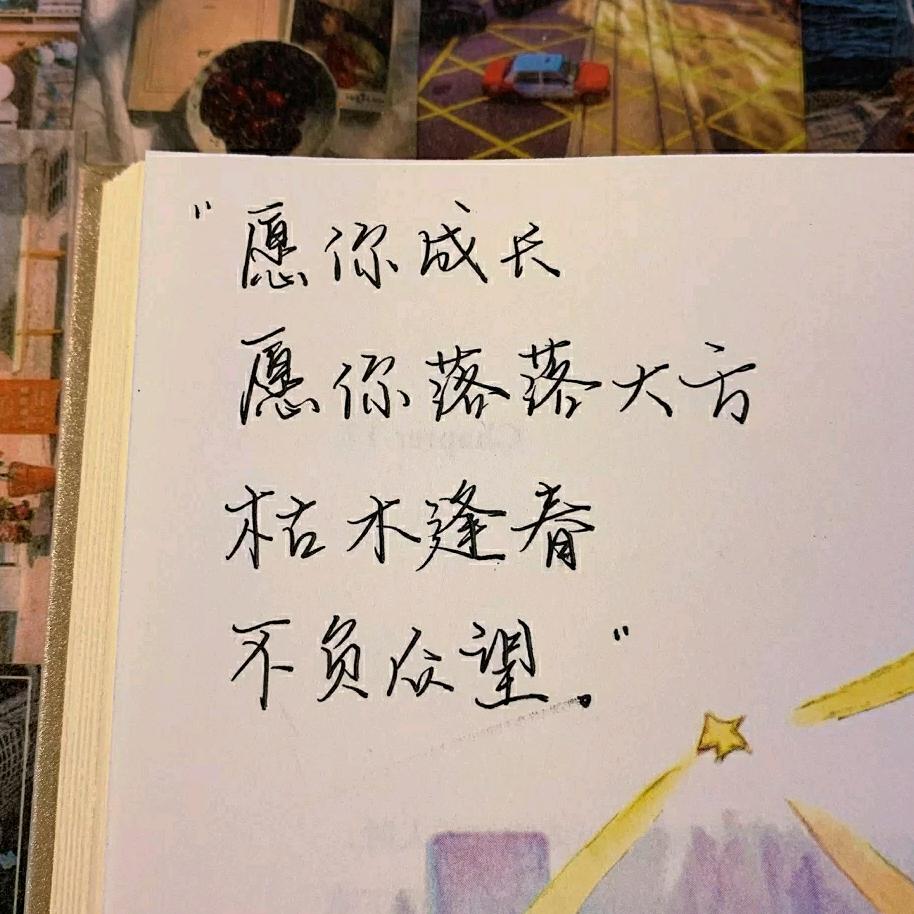 "愿你成长
愿你落落大方
枯木逢春
不负众望."